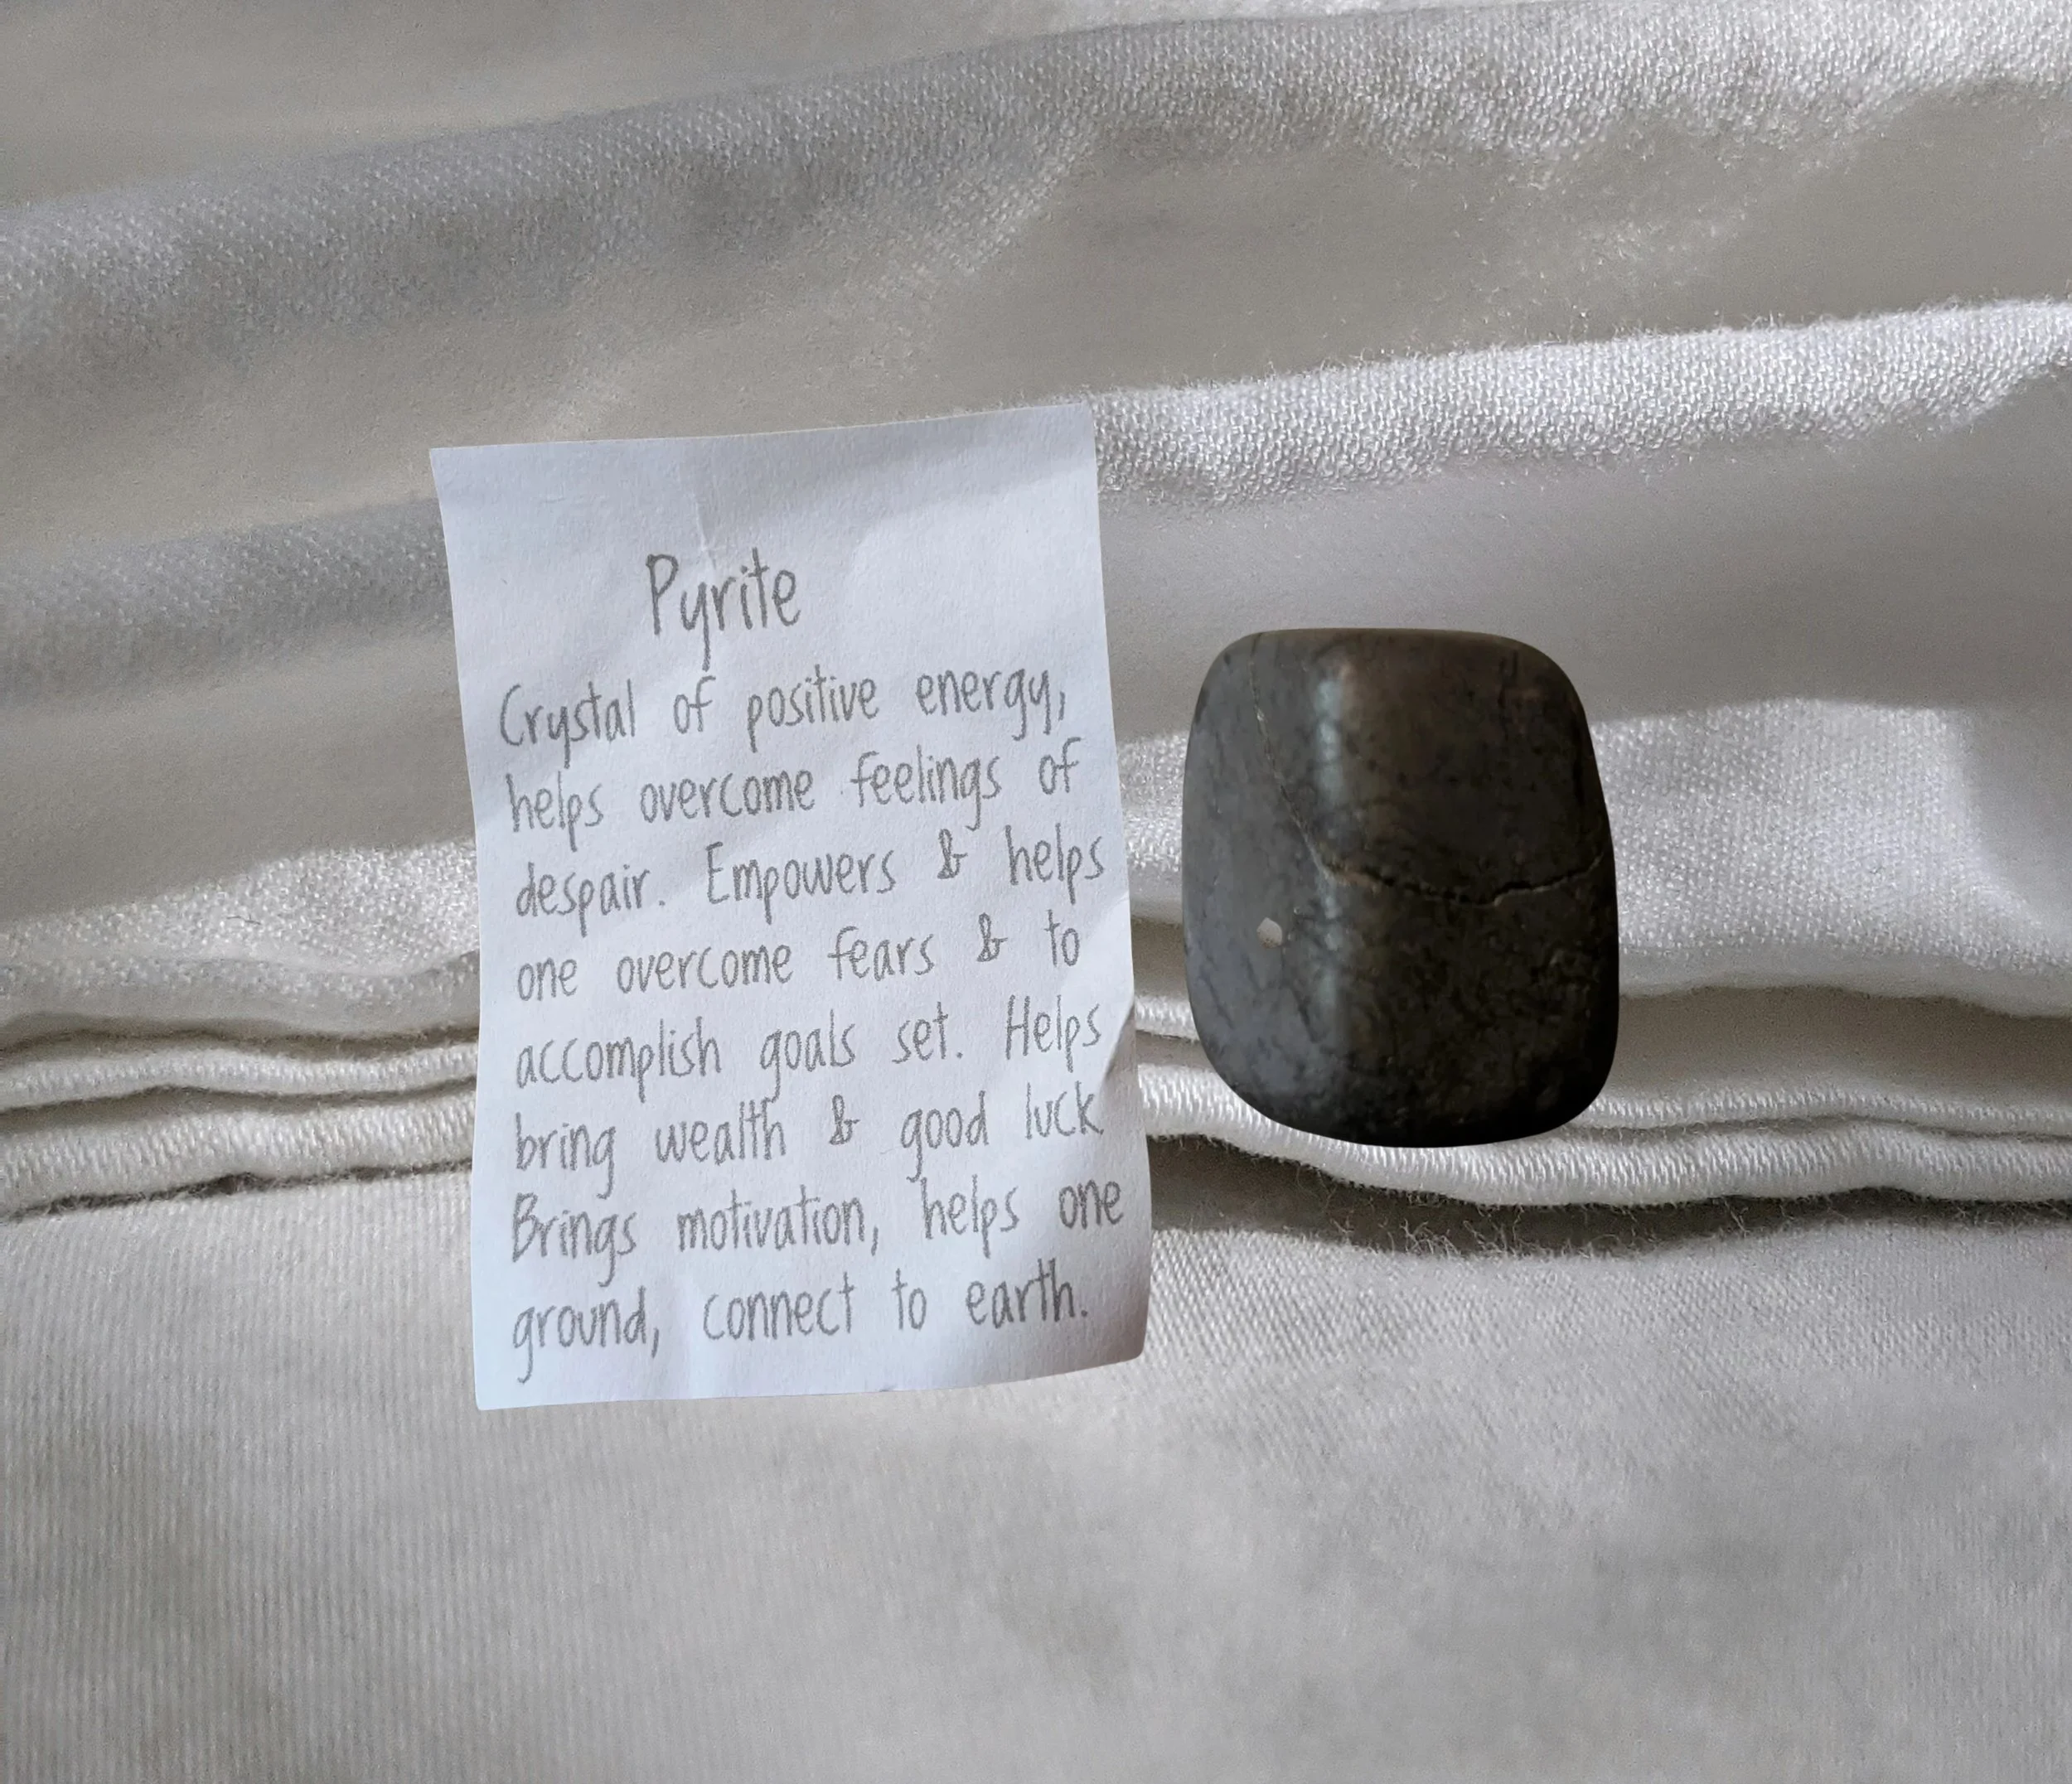 Pyrite
Crystal of positive energy,
helps overcome feelings of
despair. Empowers & helps
one overcome fears & to
accomplish goals set. Helps
bring wealth & good luck.
Brings motivation, helps one
ground, connect to earth.